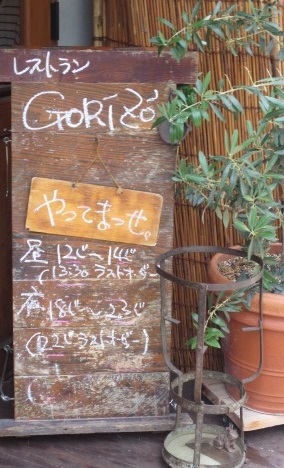 レストラン
GORIZO
やってまっせ。
昼 12じ〜14じ
(13:30 ラストオーダー
夜 18じ〜23じ
(22じラストオーダー)
(